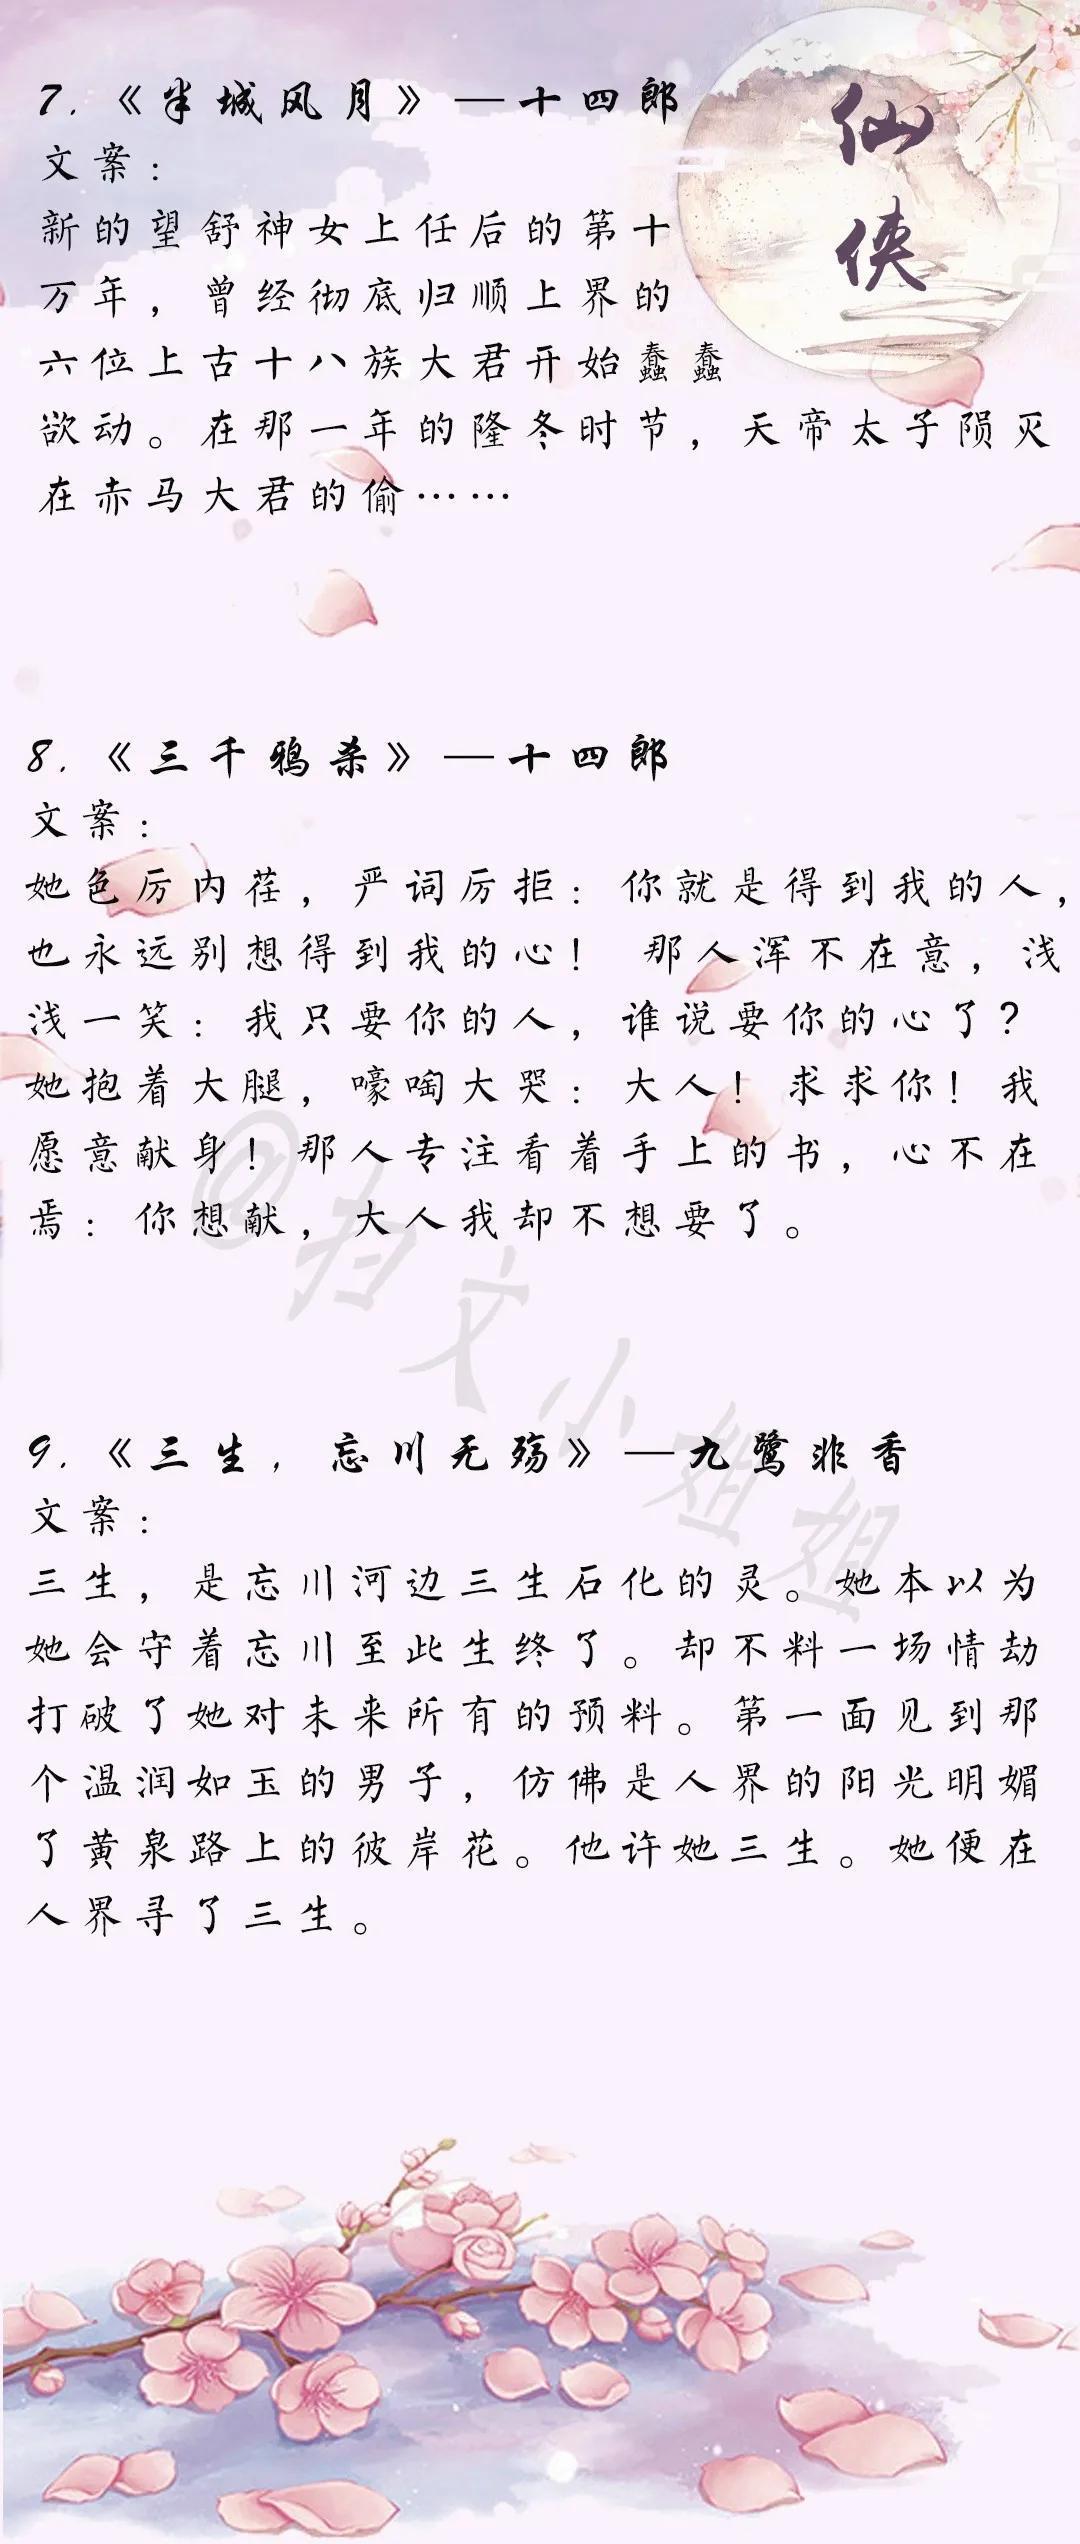 仙
侠
7.《半城风月》—十四郎
文案：
新的望舒神女上任后的第十
万年，曾经彻底归顺上界的
六位上古十八族大君开始蠢蠢
欲动。在那一年的隆冬时节，天帝太子陨灭
在赤马大君的偷……
8.《三千鸦杀》—十四郎
文案：
她色厉内荏，严词厉拒：你就是得到我的人，
也永远别想得到我的心！ 那人浑不在意，浅
浅一笑：我只要你的人，谁说要你的心了？
她抱着大腿，嚎啕大哭：大人！求求你！我
愿意献身！那人专注看着手上的书，心不在
焉：你想献，大人我却不想要了。
@扫文小姐姐
9.《三生，忘川无殇》—九鹭非香
文案：
三生，是忘川河边三生石化的灵。她本以为
她会守着忘川至此生终了。却不料一场情劫
打破了她对未来所有的预料。第一面见到那
个温润如玉的男子，仿佛是人界的阳光明媚
了黄泉路上的彼岸花。他许她三生。她便在
人界寻了三生。